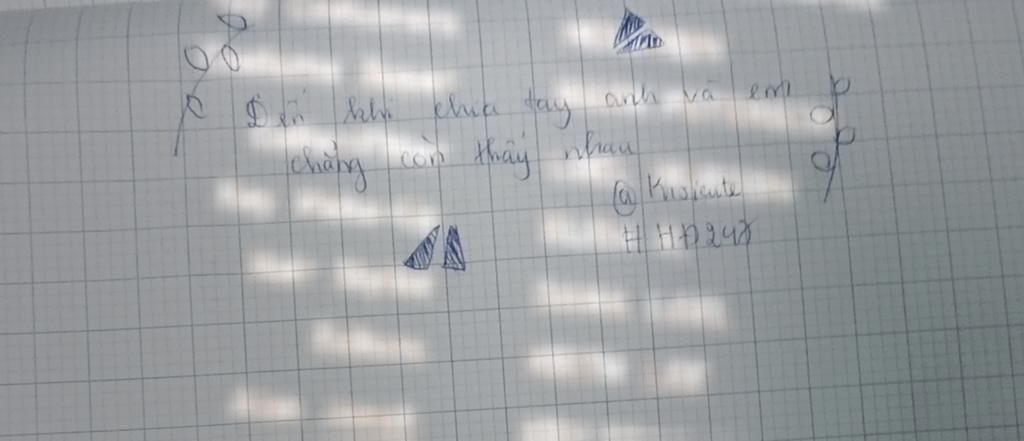 Đến khi chia tay anh và em
chẳng còn thấy nhau
@ Kisicute
# HHA24x